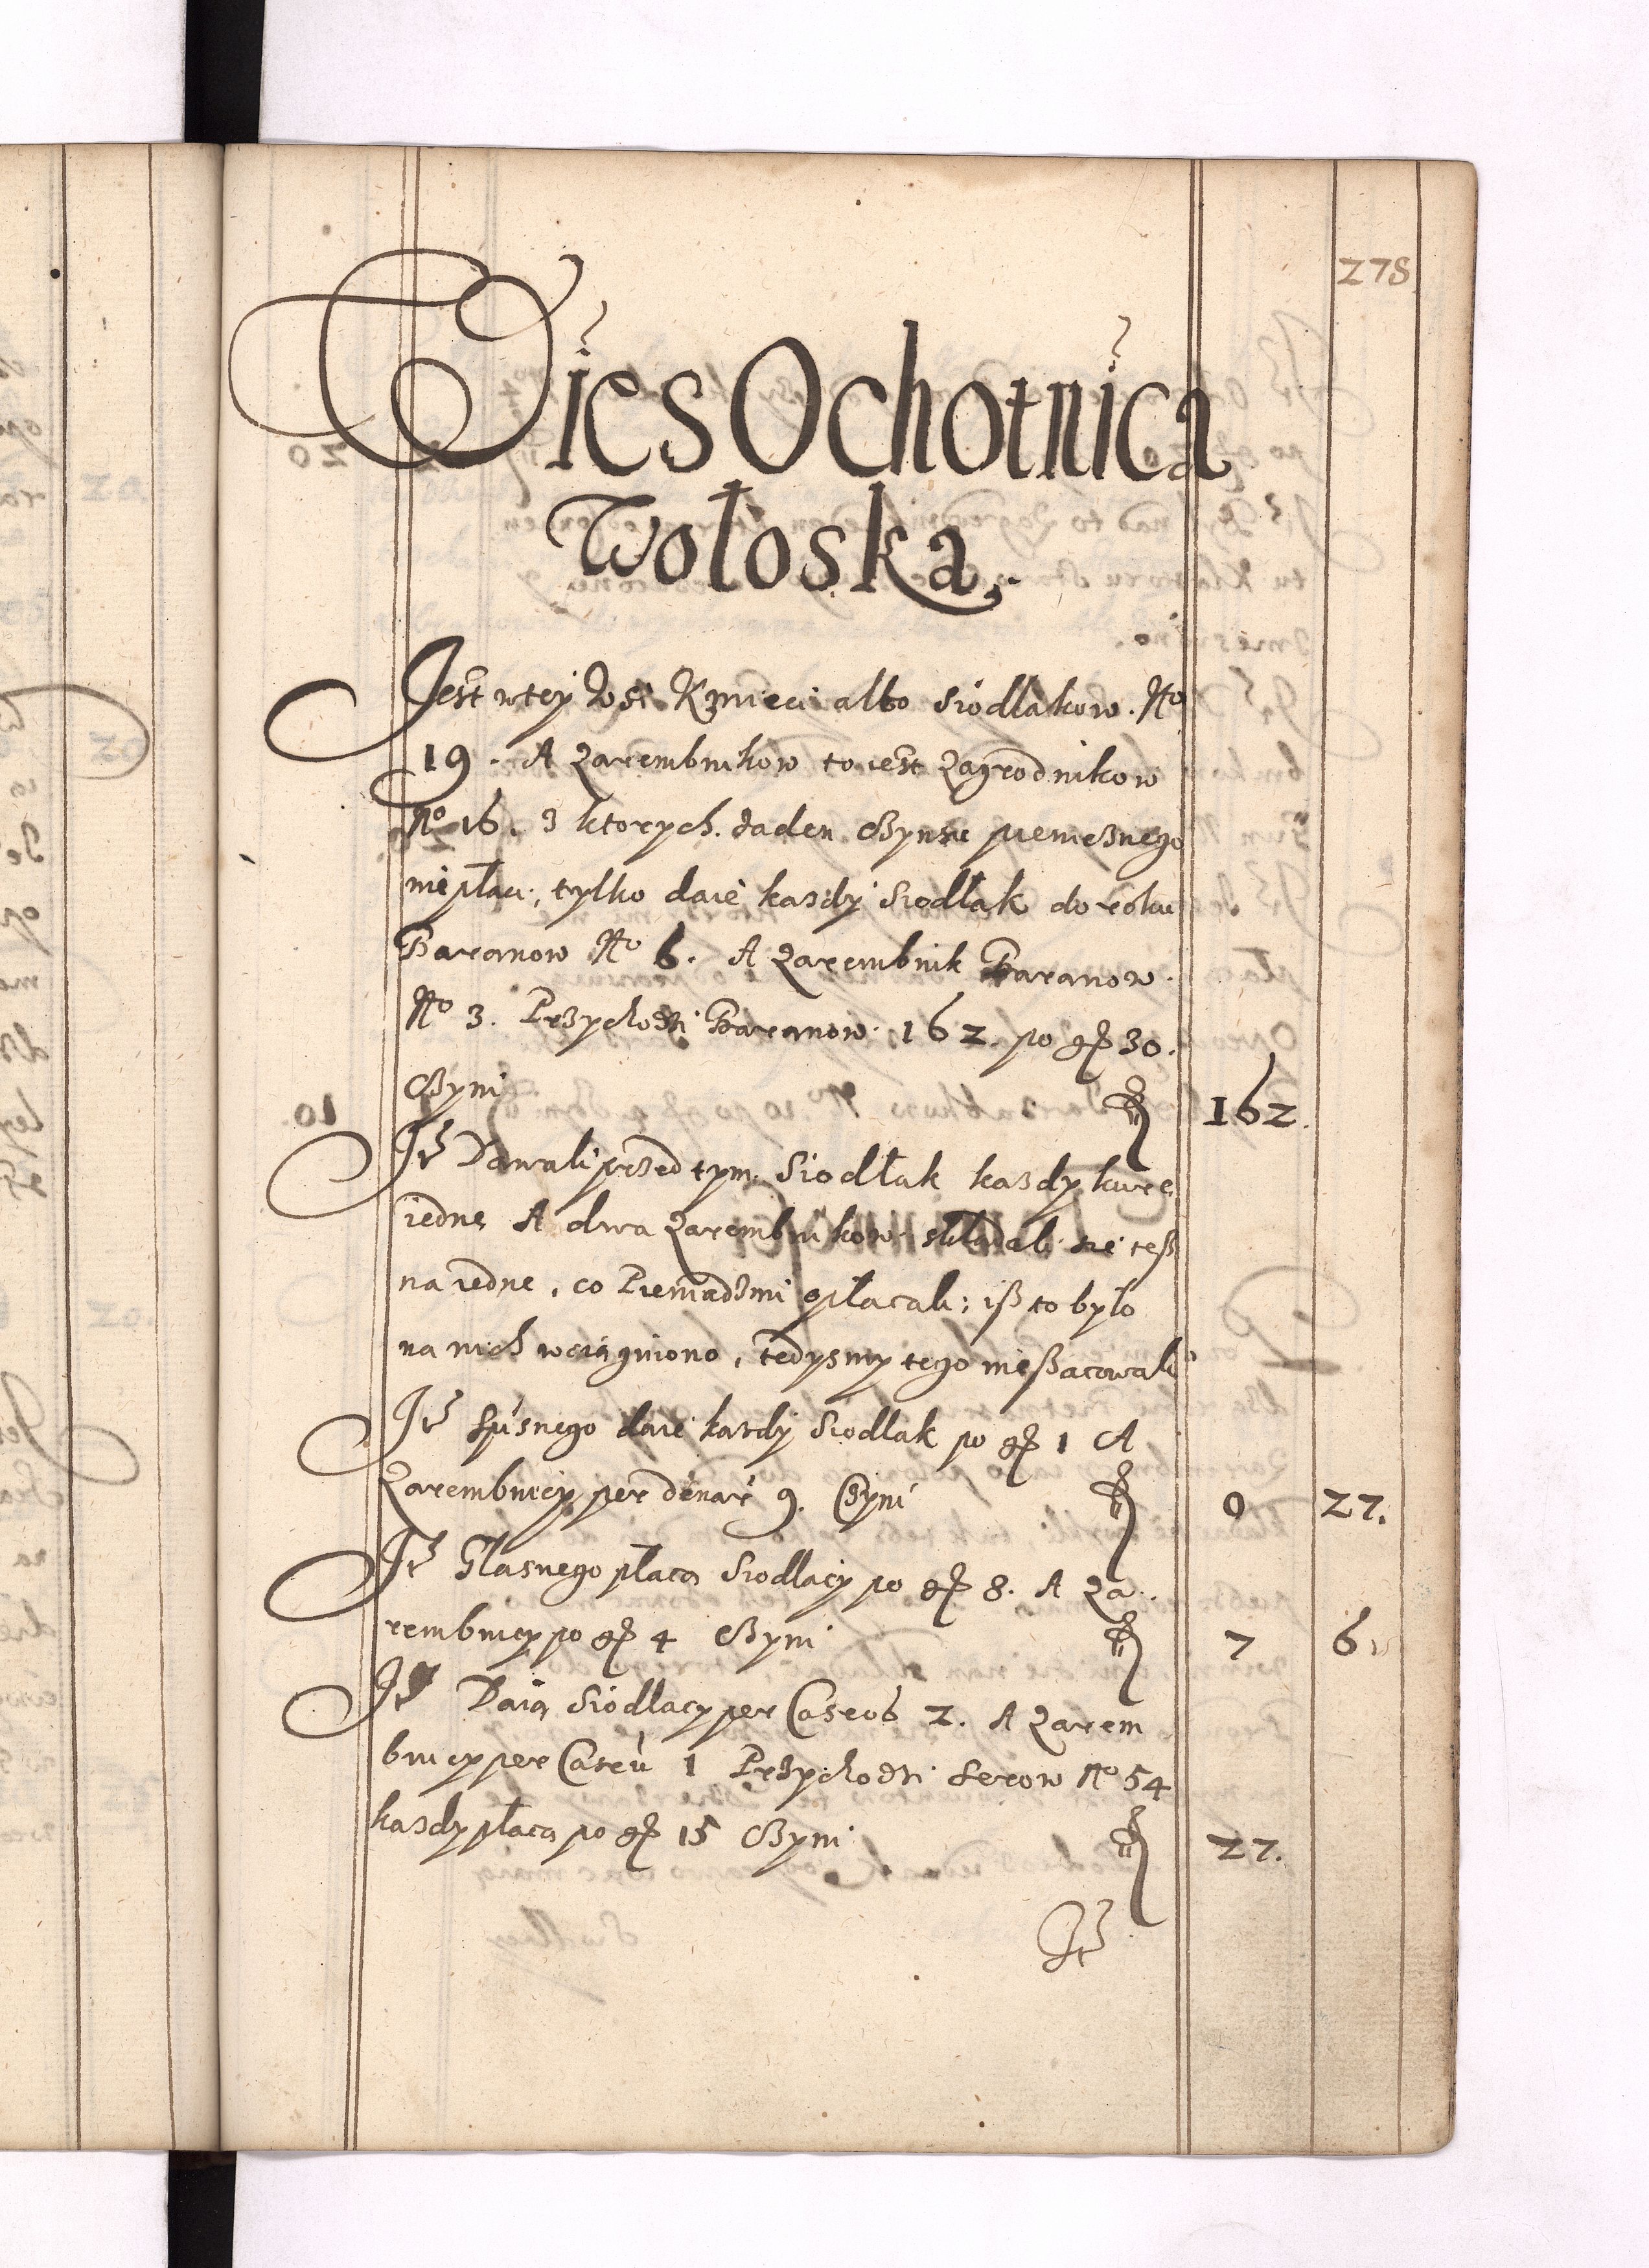 278
Wies Ochotnica
Wołoska.
Jest w tey Wsi Kmieci albo Siodlakow. No
19. A Zarembnikow to iest Zagrodnikow
No 16. z ktorych. żaden Czynszu pienieżnego
nie płaci, tylko daie kazdy Siodlak do roku
Baranow No 6. A Zarembnik Baranow.
No 3. Przychodzi Baranow. 162. po gr 30.
Czyni fl 162.
It Dawali przed tym. Siodłak kazdy kure
iedne A dwa Zarembnikow składali sie tesz
na iedne, co Pieniadzmi opłacali: isz to było
na nich wciągniono, tedysmy tego nie szacowali
It Spusnego daie kazdy Siodlak po gr 1 A
Zarembnicy per denar 9. Czyni fl 0 27.
It Glasnego płacą Siodlacy po gr 8. A Za
rembnicy po gr 4 Czyni fl 7 6.
It Daią Siodlacy per Caseos 2. A Zarem
bnicy per Caseu 1 Przychodzi Serow No 54
kazdy płacą po gr 15 Czyni fl 27.
It